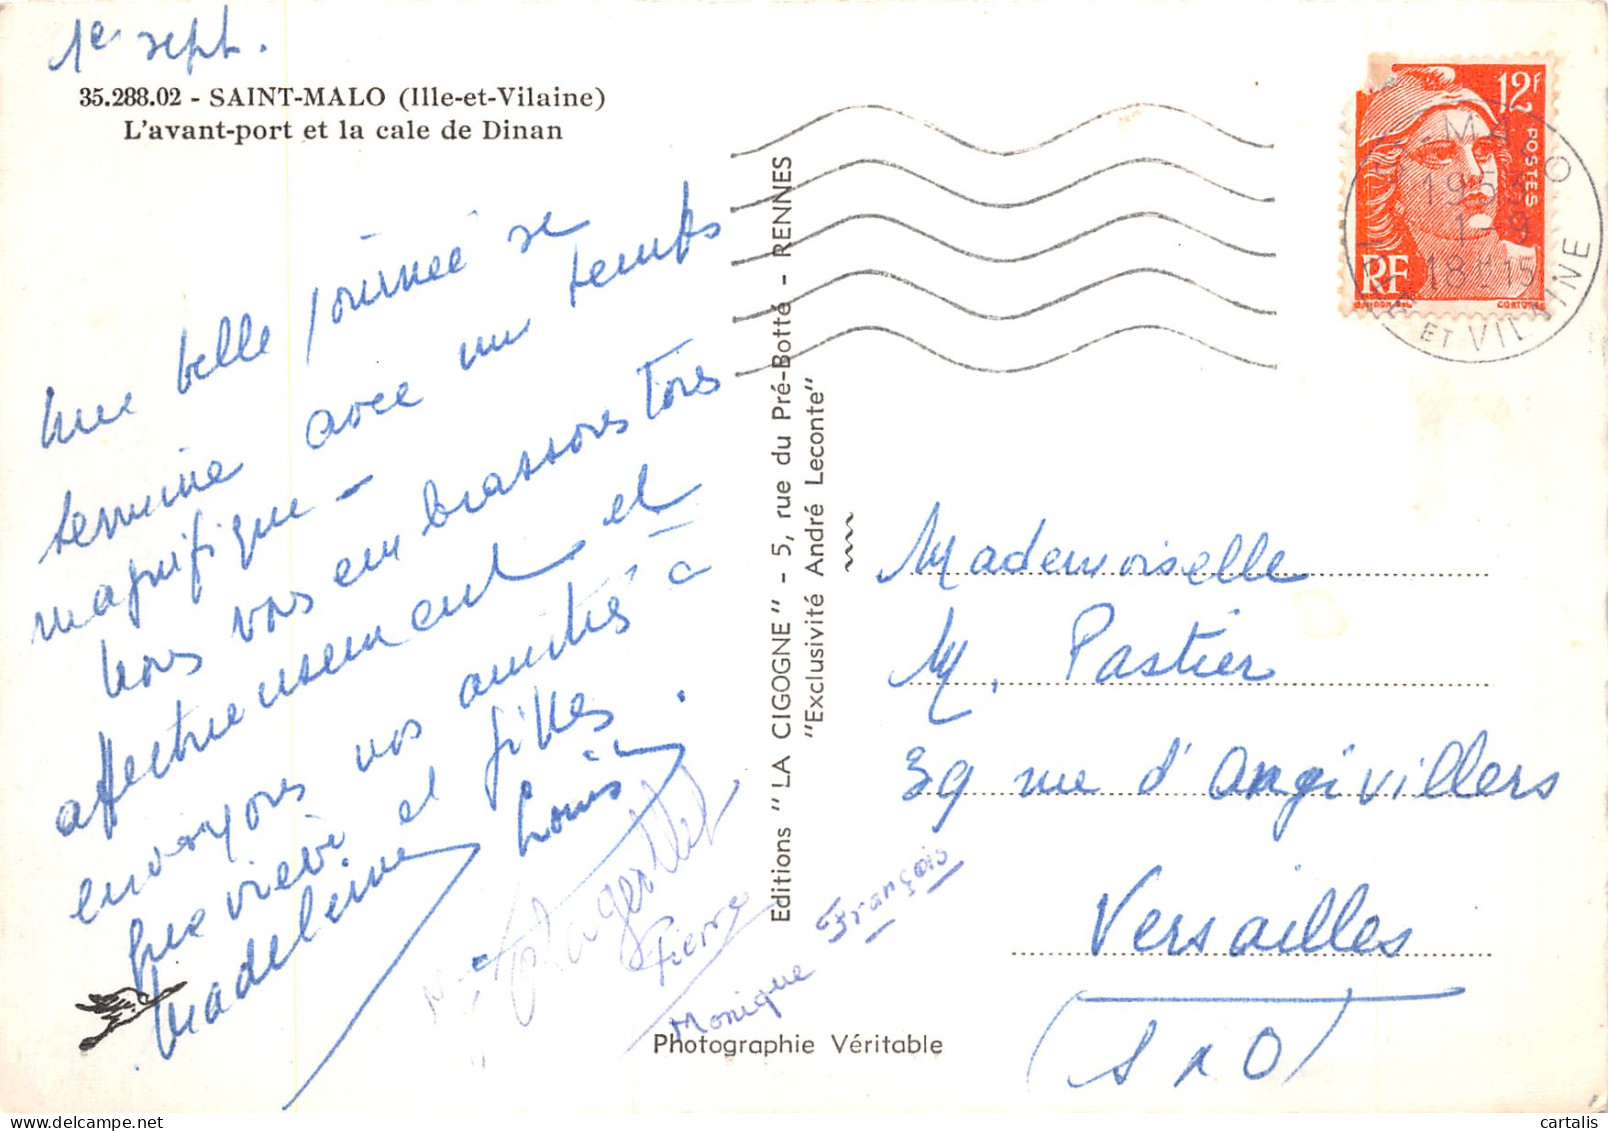 1e sept.
35.288.02 - SAINT-MALO (Ille-et-Vilaine)
L'avant-port et la cale de Dinan
Une belle journée se
termine avec un temps
magnifique -
Nous vous embrassons tous
affectueusement et
envoyons nos amitiés à
Geneviève et filles.
Madeleine Louis
Pierre
Monique François
Editions "LA CIGOGNE" - 5, rue du Pré-Botté - RENNES
"Exclusivité André Leconte"
Photographie Véritable
12F
POSTES
RF
GANDON DEL.
CORTOT SC.
ST-MALO
1953
1-9
18H15
ILLE ET VILAINE
Mademoiselle
M. Pastier
39 rue d'Angivillers
Versailles
(S & O)
cartalis